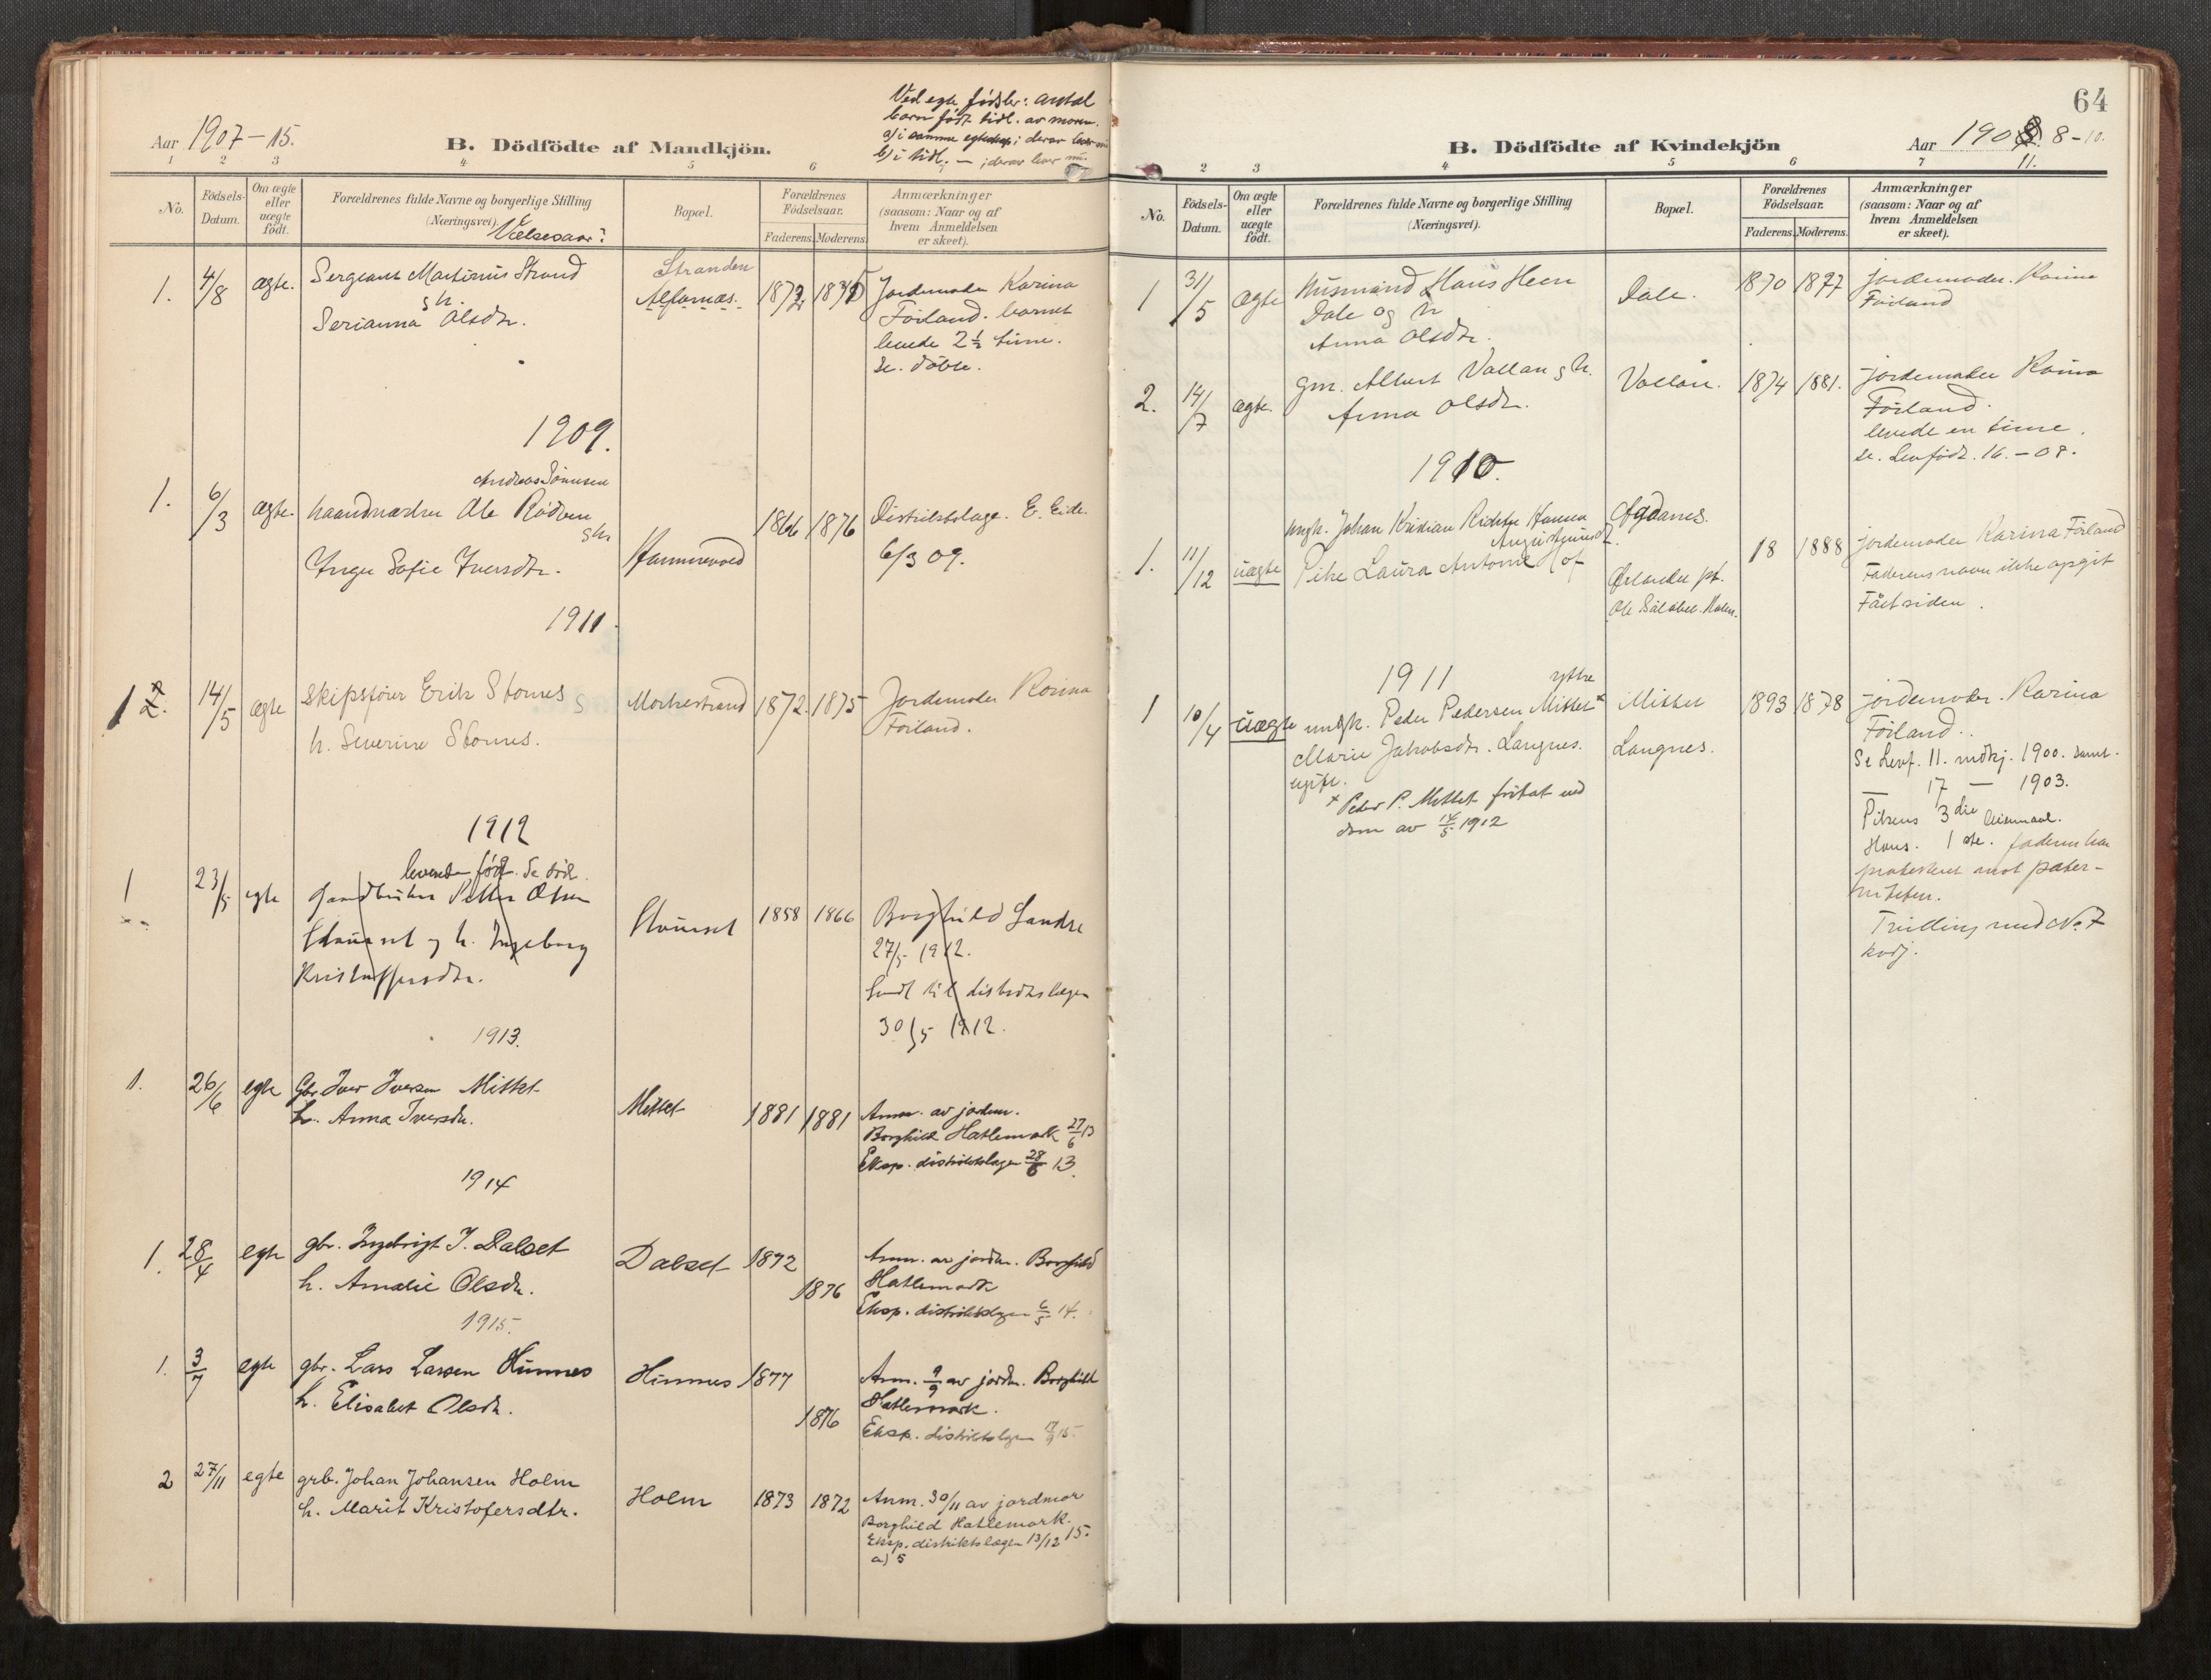 Aar 1907-15.
B. Dödfödte af Mandkjön.
Ved egte fødsler: antal
barn født tidl. av moren.
a) i samme egteskap; derav lever nu
b) i tidl. — ; derav lever nu.
1 2 3 4 5 6 7
No.
Födsels-
Datum.
Om ægte
eller
uægte
födt.
Forældrenes fulde Navne og borgerlige Stilling
(Næringsvei).
Bopæl.
Forældrenes
Födselsaar.
Faderens. Moderens.
Anmærkninger
(saasom: Naar og af
hvem Anmeldelsen
er skeet).
1. 4/8 ægte. Sergeant Martinus Strand
g h.
Serianna Olsdtr.
Stranden
Alfarnæs.
1872
Jordemoder Karina
Förland. barnet
levede 2 1/2 time.
se. døbte.
1909.
1. 6/3 ægte. haandværker Ole Rödven
gh
Inger Sofie Iversdtr.
Hammervold
1866 1876
Distriktslæge. E. Eide.
6/3 09.
1911.
1 14/5 ægte Skipsfører Erik Stornes g
h. Severine Stornes.
1872. 1875
Jordemoder Karina
Förland.
1912
levende født. Se död.
1 23/5 egte Gaardbruker Petter Olsen
g h. Ingeborg
Kristoffersdtr.
1858 1866
Borghild Landre
27/5 1912.
Sendt til distriktslægen
30/5 1912.
1913.
1. 26/6 egte Gbr Iver Iversen Mittet
h. Anna Iversdtr.
Mittet
1881 1881
Anm. av jordm.
Borghild Hatlemark 27/6 13
Eksp. distriktslægen 28/6 13.
1914
1. 28/4 egte gbr. Ingebrigt I. Dalset
h. Amalie Olsdtr.
Dalset
1872
1876
Anm. av jordm. Borghild
Hatlemark
Eksp. distriktslægen 6/5 14.
1915.
1. 3/7 egte gbr. Lars Larsen Hinnes
h. Elisabet Olsdtr.
Hinnes
1877
1876
Anm. 9/9 av jordm. Borghild
Hatlemark.
Eksp. distriktslægen 17/9 15.
2 27/11 egte grb. Johan Johansen Holm
h. Marit Kristofersdtr.
Holm
1873 1872
Anm. 30/11 av jordmor
Borghild Hatlemark.
Eksp. distriktslægen 13/12 15.
a) 5
64
B. Dödfödte af Kvindekjön
Aar 1908-10.
11.
2 3 4 5 6 7
No.
Födsels-
Datum.
Om ægte
eller
uægte
födt.
Forældrenes fulde Navne og borgerlige Stilling
(Næringsvei).
Bopæl.
Forældrenes
Födselsaar.
Faderens. Moderens.
Anmærkninger
(saasom: Naar og af
hvem Anmeldelsen
er skeet).
1 31/5 ægte Husmand Hans Heen
Dale og h
Anna Olsdtr.
Dale.
1870 1877
jordemoder. Karina
Förland
2. 14/7 ægte. gm. Albert Vollan g h.
Anna Olsdtr.
Vollan.
1874 1881.
jordemoder Karina
Förland.
levede en time.
se. Levfödt. 16. - 08.
1910.
ungk. Johan Kristian Richter Hansen
1. 11/12 uægte Pike Laura Antonie Hof
18 1888
jordemoder Karina Förland
Faderens navn ikke opgit
Fået siden.
1911
ytre
1 10/4 uægte ungk. Peder Pedersen Mittet x
Marie Jakobsdtr. Langnes.
ugift.
x Peder P. Mittet frifat ved
dom av 14/5 1912
Mittet
Langnes.
1893 1878
jordemoder. Karina
Förland.
Se Levf. 11. mdkj. 1900. samt.
— 17 — 1903.
Pikens 3die leiermaal.
Hans. 1ste. faderen har
protesteret mot pater-
niteten.
Tvilling med No. 7
kvdj.